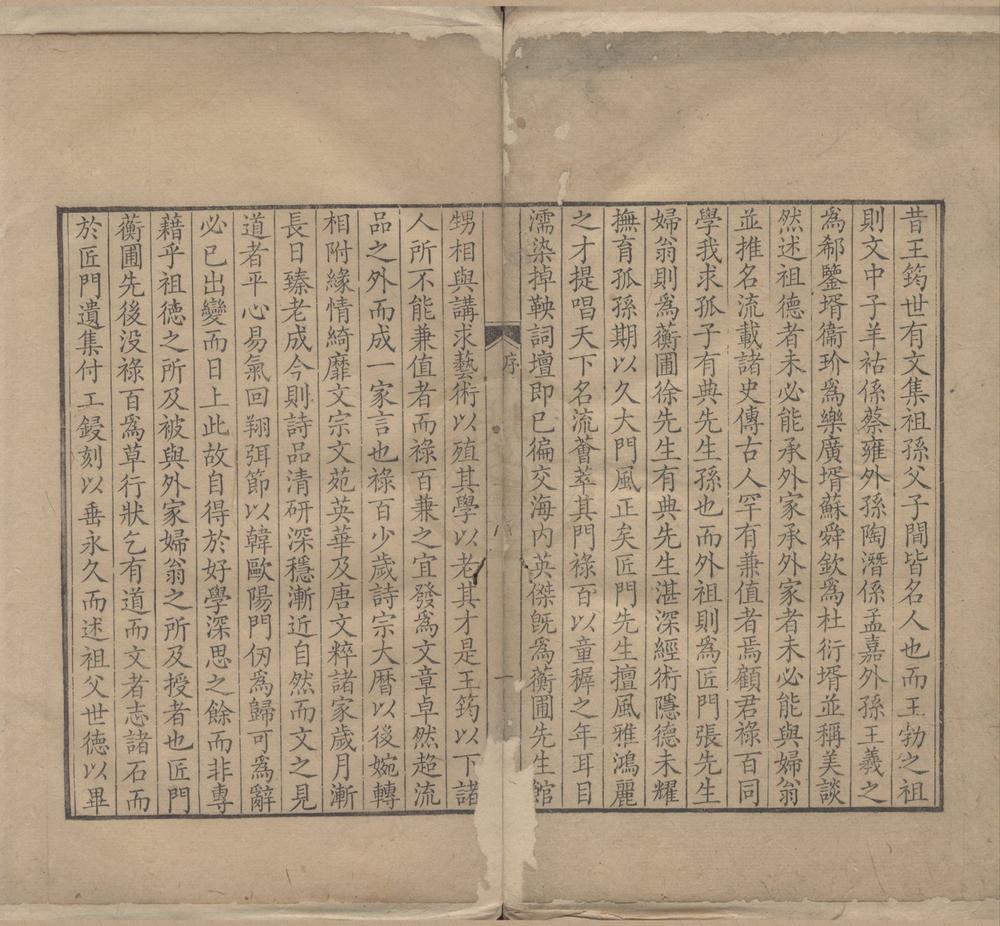 昔王筠世有文集祖孫父子間皆名人也而王勃之祖
則文中子羊祜係蔡雍外孫陶潛係孟嘉外孫王羲之
為郗鑒壻衞玠為樂廣壻蘇舜欽為杜衍壻並稱美談
然述祖德者未必能承外家承外家者未必能與婦翁
並推名流載諸史傳古人罕有兼值者焉顧君祿百同
學我求孤子有典先生孫也而外祖則為匠門張先生
婦翁則為蘅圃徐先生有典先生湛深經術隱德未耀
撫育孤孫期以久大門風正矣匠門先生擅風雅鴻麗
之才提唱天下名流薈萃其門祿百以童穉之年耳目
濡染掉鞅詞壇即已徧交海内英傑旣為蘅圃先生館
序
一
甥相與講求藝術以殖其學以老其才是王筠以下諸
人所不能兼值者而祿百兼之宜發為文章卓然超流
品之外而成一家言也祿百少歲詩宗大曆以後婉轉
相附緣情綺靡文宗文苑英華及唐文粹諸家歲月漸
長日臻老成今則詩品清研深穩漸近自然而文之見
道者平心易氣回翔弭節以韓歐陽門仞為歸可為辭
必已出變而日上此故自得於好學深思之餘而非專
藉乎祖德之所及被與外家婦翁之所及授者也匠門
蘅圃先後没祿百為草行狀乞有道而文者志諸石而
於匠門遺集付工鋟刻以垂永久而述祖父世德以畢